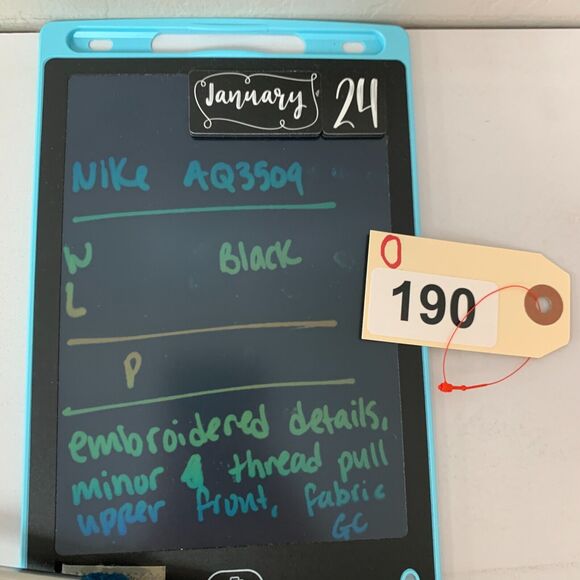 January 24
Nike AQ3509
O
W Black
190
L
P
embroidered details,
minor thread pull
upper front, fabric
GC